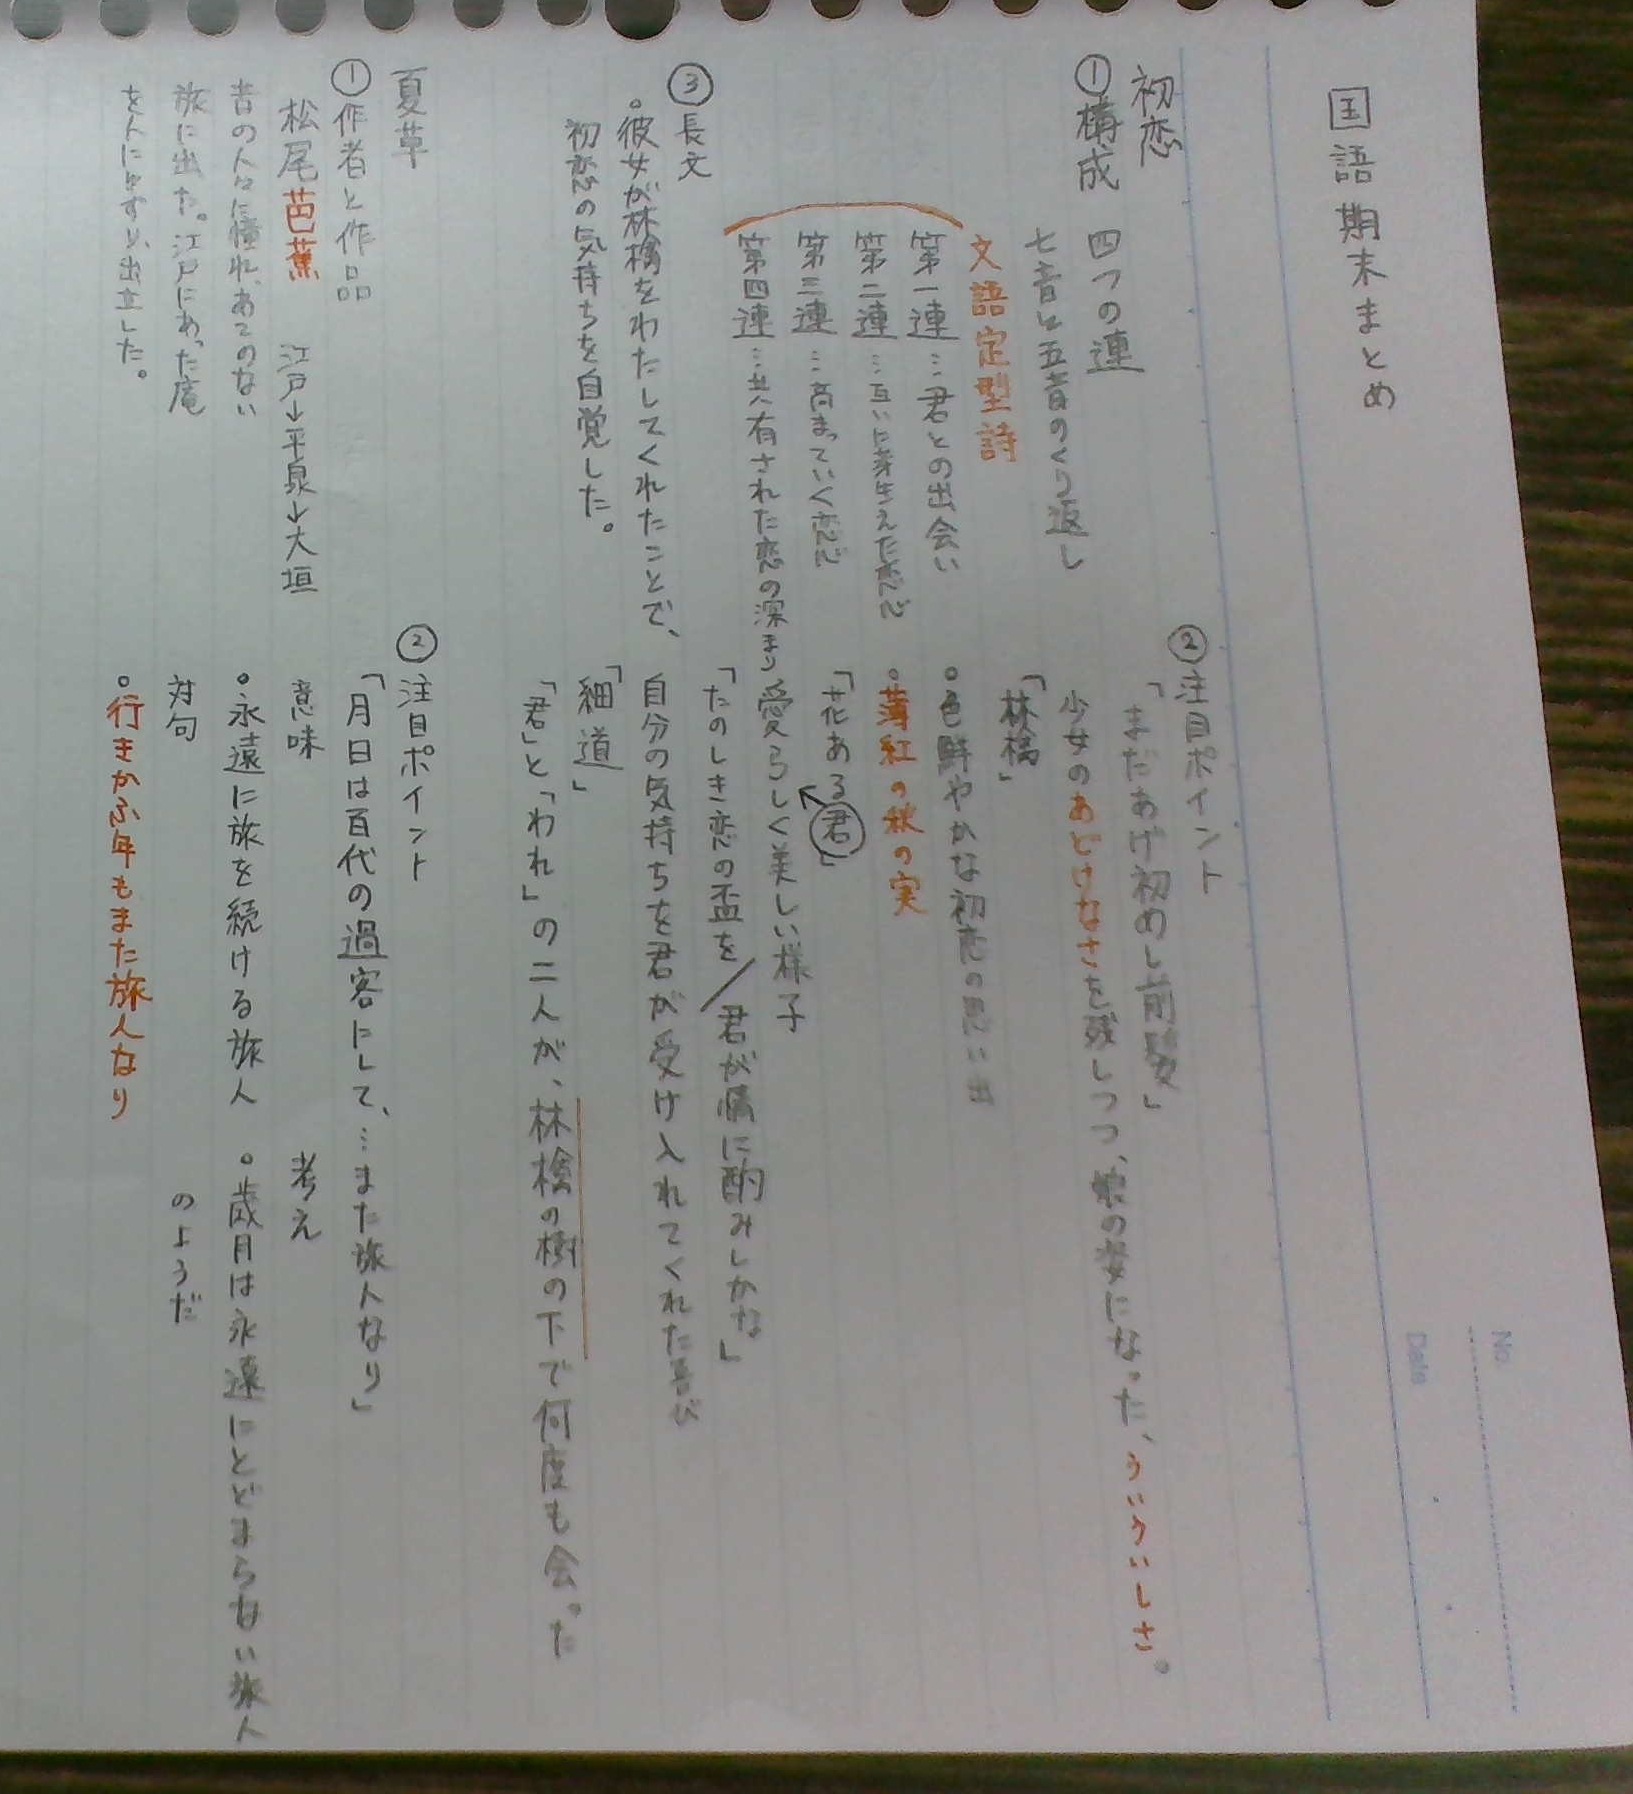 No.
Date
国語期末まとめ
初恋
①構成 四つの連
七音と五音のくり返し
文語定型詩
第一連…君との出会い
第二連…互いに芽生えた恋心
第三連…高まっていく恋心
第四連…共有された恋の深まり
②注目ポイント
「まだあげ初めし前髪」
少女のあどけなさを残しつつ、娘の姿になった、ういういしさ。
「林檎」
・色鮮やかな初恋の思い出
・薄紅の秋の実
「花ある君」
愛らしく美しい様子
「たのしき恋の盃を/君が情に酌みしかな」
自分の気持ちを君が受け入れてくれた喜び
「細道」
「君」と「われ」の二人が、林檎の樹の下で何度も会った
③長文
・彼女が林檎をわたしてくれたことで、
初恋の気持ちを自覚した。
夏草
①作者と作品
松尾芭蕉 江戸→平泉→大垣
昔の人々に憧れ、あてのない
旅に出た。江戸にあった庵
を人にゆずり、出立した。
②注目ポイント
「月日は百代の過客にして、…また旅人なり」
意味
・永遠に旅を続ける旅人
考え
・歳月は永遠にとどまらない旅人
のようだ
対句
・行きかふ年もまた旅人なり